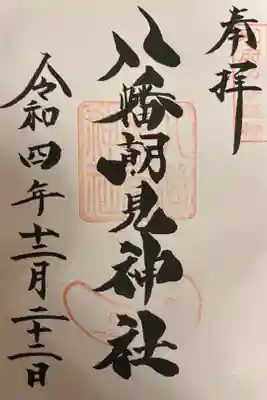 奉拝
八幡朝見神社
令和四年十二月二十二日